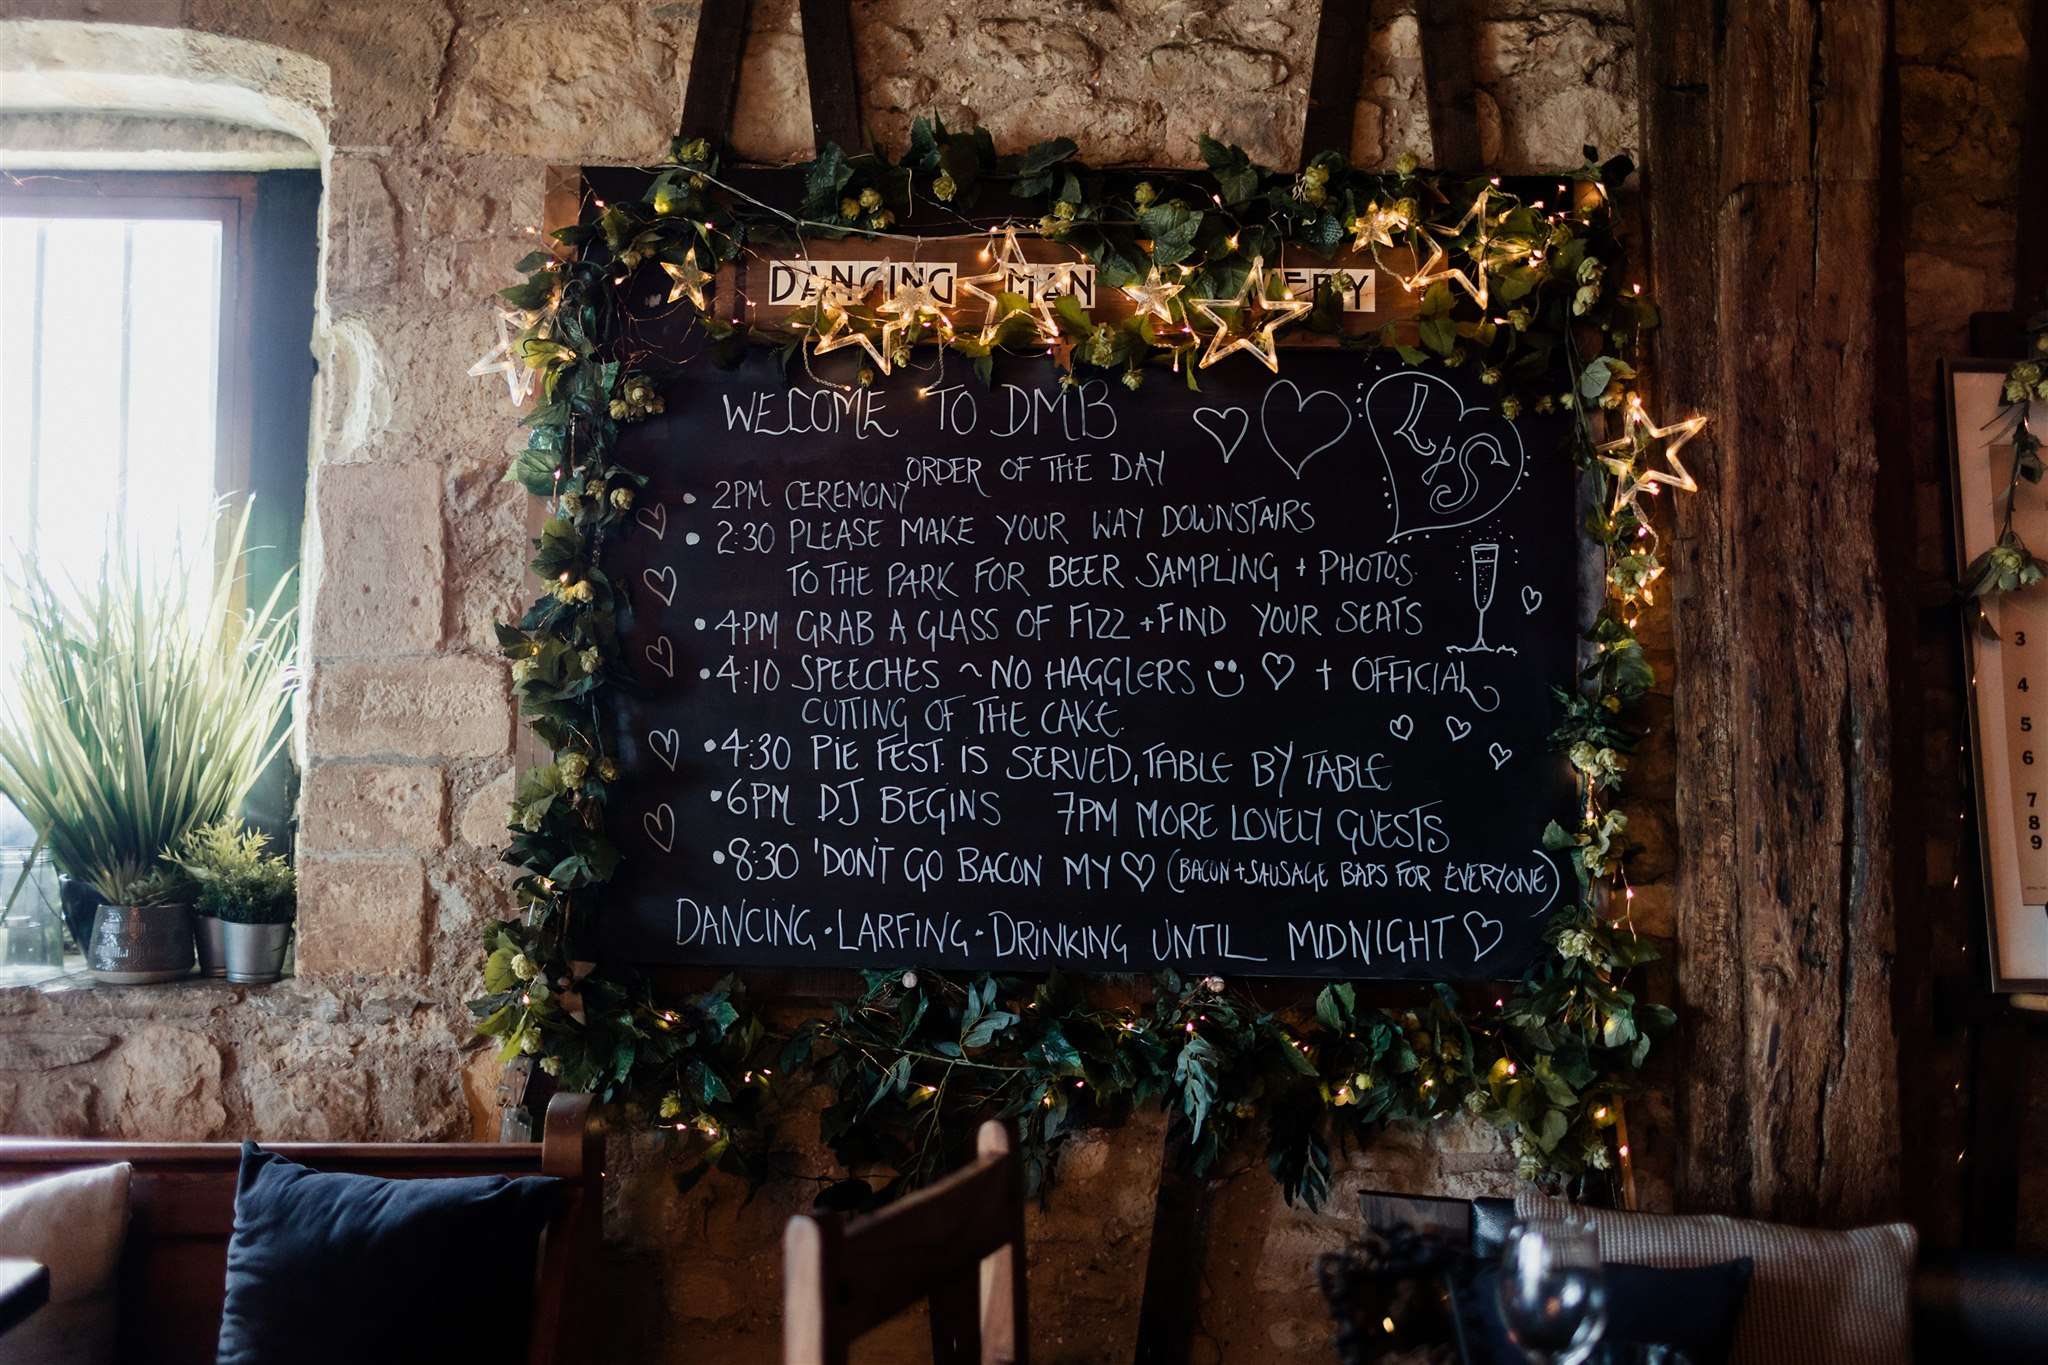 DANCING MAN
WELCOME TO DMB
ORDER OF THE DAY
L & S
• 2PM CEREMONY
• 2:30 PLEASE MAKE YOUR WAY DOWNSTAIRS
TO THE PARK FOR BEER SAMPLING + PHOTOS
• 4PM GRAB A GLASS OF FIZZ + FIND YOUR SEATS
• 4:10 SPEECHES ~ NO HAGGLERS ☺ ♡ + OFFICIAL
CUTTING OF THE CAKE.
• 4:30 PIE FEST IS SERVED, TABLE BY TABLE
• 6PM DJ BEGINS 7PM MORE LOVELY GUESTS
• 8:30 'DON'T GO BACON MY ♡ (BACON + SAUSAGE BAPS FOR EVERYONE)
DANCING • LARFING • DRINKING UNTIL MIDNIGHT ♡
3
4
5
6
7
8
9